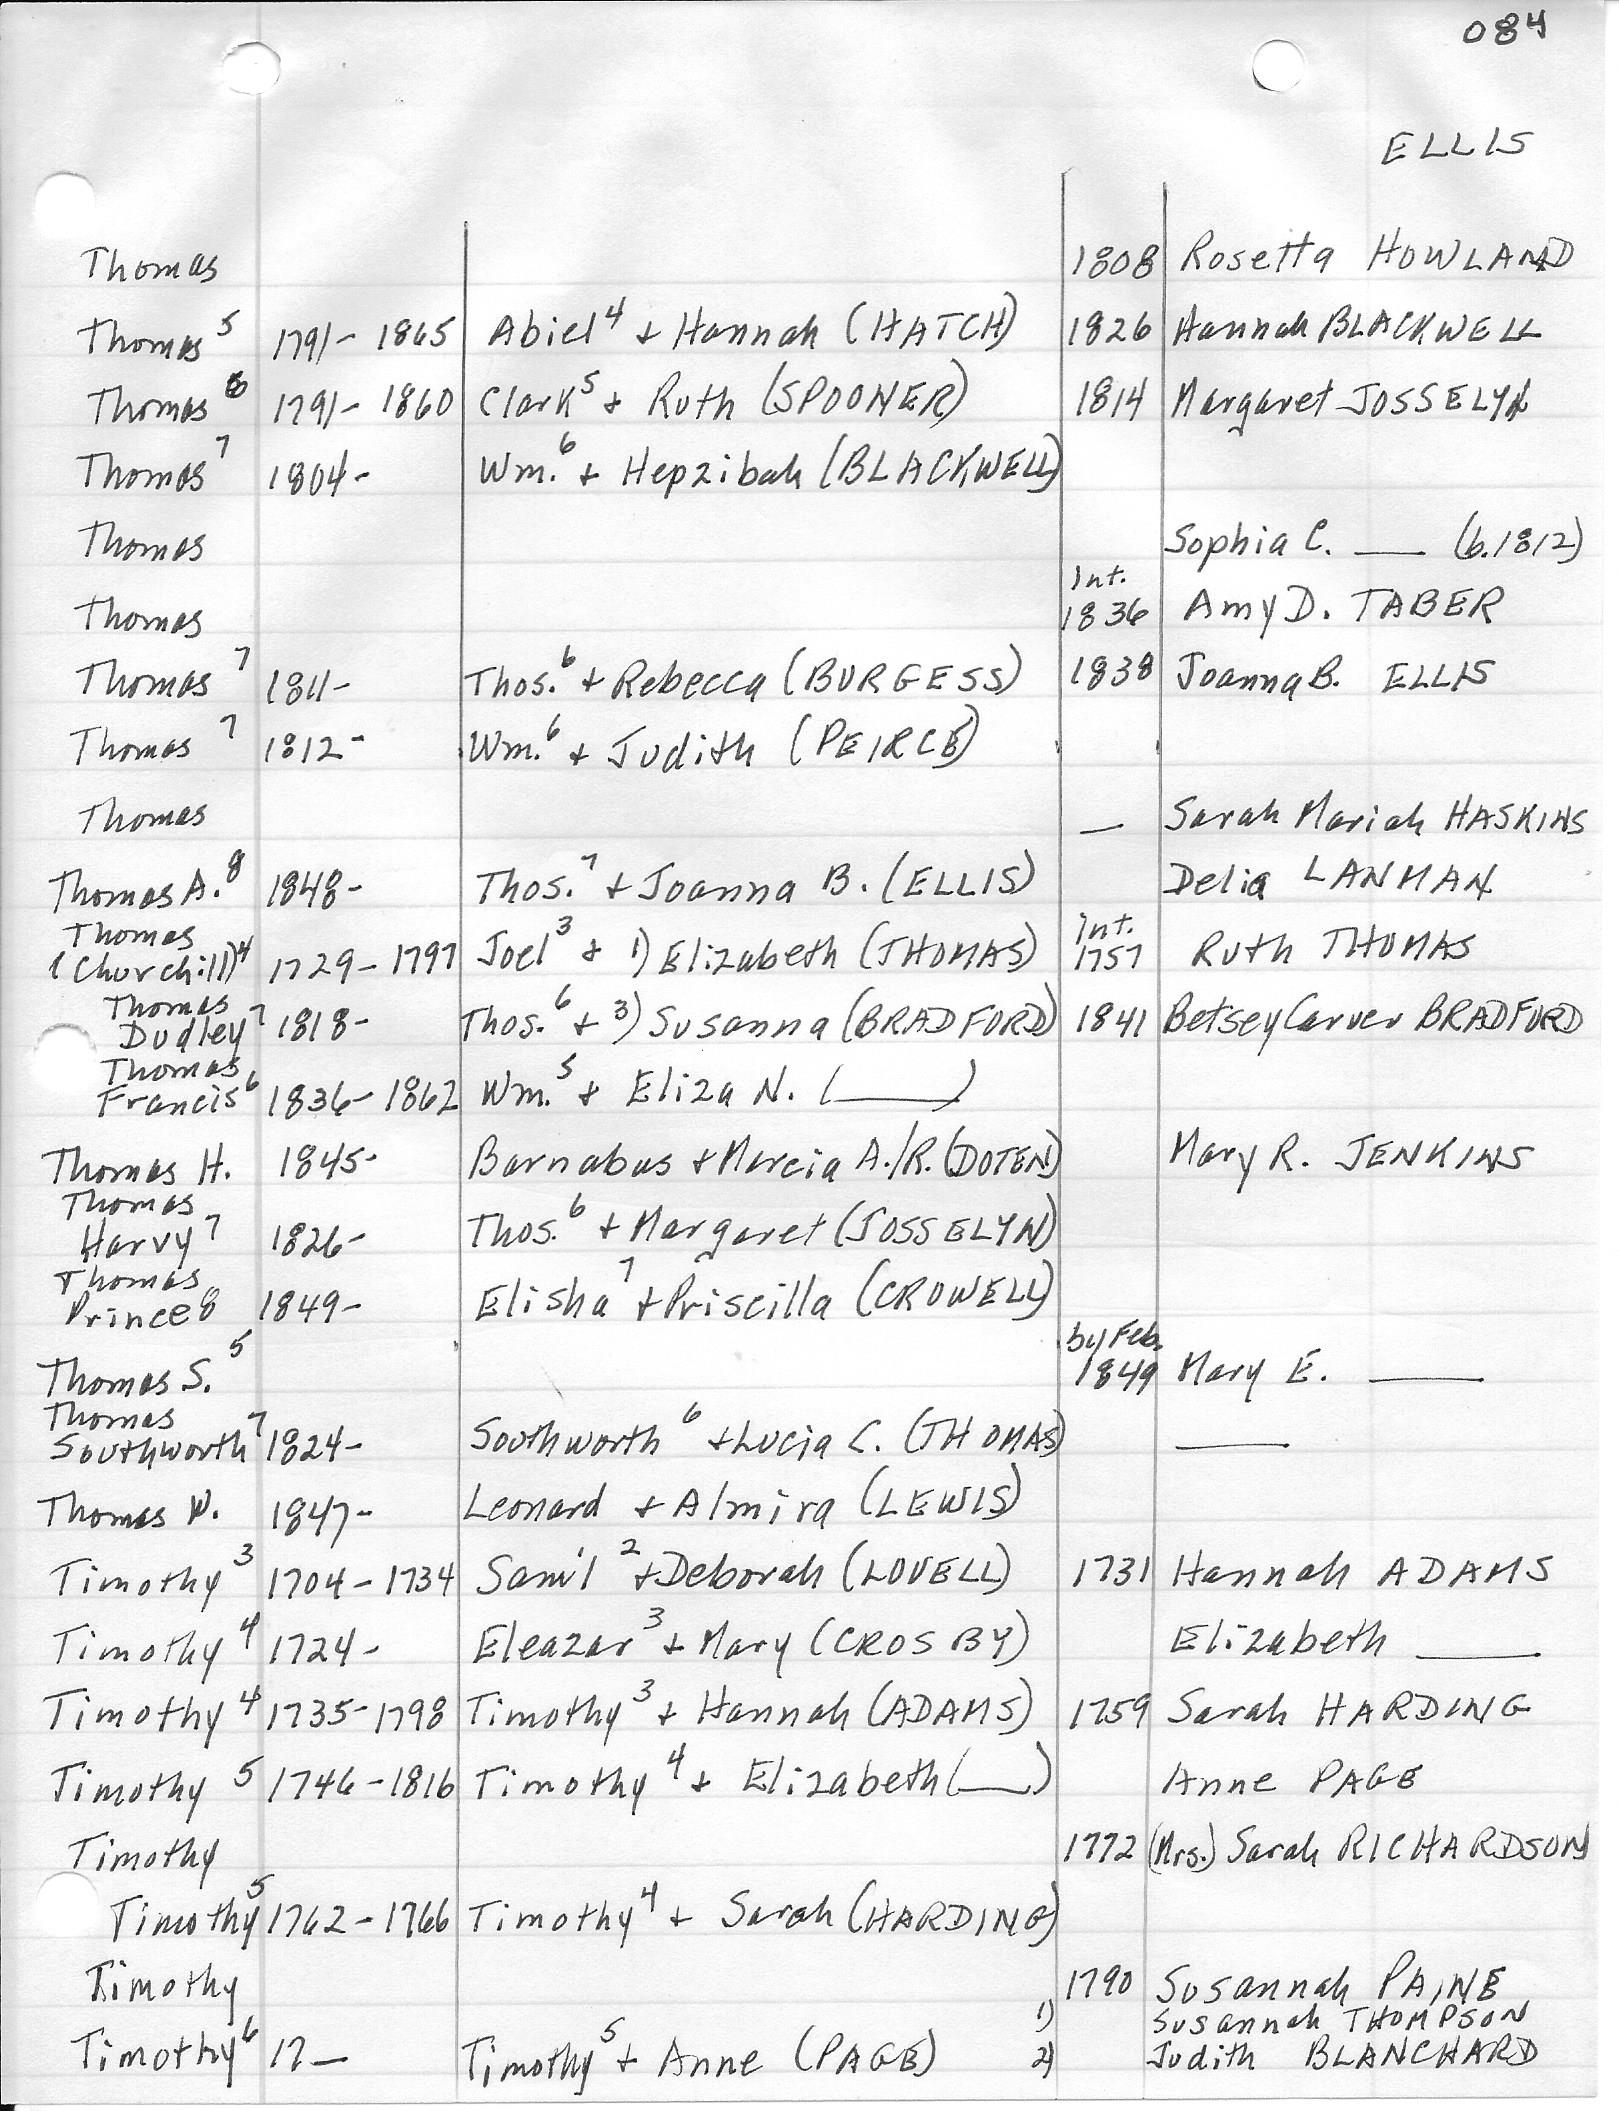 084
ELLIS
Thomas 1808 Rosetta HOWLAND
Thomas⁵ 1791- 1865 Abiel⁴ + Hannah (HATCH) 1826 Hannah BLACKWELL
Thomas⁶ 1791- 1860 Clark⁵ + Ruth (SPOONER) 1814 Margaret JOSSELYN
Thomas⁷ 1804- Wm.⁶ + Hepzibah (BLACKWELL)
Thomas Sophia C. ___ (b.1812)
Int.
Thomas 1836 Amy D. TABER
Thomas⁷ 1811- Thos.⁶ + Rebecca (BURGESS) 1838 Joanna B. ELLIS
Thomas⁷ 1812- Wm.⁶ + Judith (PEIRCE)
Thomas — Sarah Mariah HASKINS
Thomas A.⁸ 1848- Thos.⁷ + Joanna B. (ELLIS) Delia LANMAN
Thomas Int.
(Churchill)⁴ 1729-1797 Joel³ + 1) Elizabeth (THOMAS) 1757 Ruth THOMAS
Thomas
Dudley⁷ 1818- Thos.⁶ + 3) Susanna (BRADFORD) 1841 Betsey Carver BRADFORD
Thomas
Francis⁶ 1836-1862 Wm.⁵ + Eliza N. (___)
Thomas H. 1845- Barnabas + Marcia A./R. (DOTEN) Mary R. JENKINS
Thomas
Harvy⁷ 1826- Thos.⁶ + Margaret (JOSSELYN)
Thomas
Prince⁸ 1849- Elisha⁷ + Priscilla (CROWELL)
by Feb.
Thomas S.⁵ 1849 Mary E. ___
Thomas
Southworth⁷ 1824- Southworth⁶ + Lucia C. (THOMAS) ___
Thomas W. 1847- Leonard + Almira (LEWIS)
Timothy³ 1704-1734 Sam'l² + Deborah (LOVELL) 1731 Hannah ADAMS
Timothy⁴ 1724- Eleazar³ + Mary (CROSBY) Elizabeth ___
Timothy⁴ 1735-1798 Timothy³ + Hannah (ADAMS) 1759 Sarah HARDING
Timothy⁵ 1746-1816 Timothy⁴ + Elizabeth (___) Anne PAGE
Timothy 1772 (Mrs.) Sarah RICHARDSON
Timothy⁵ 1762-1766 Timothy⁴ + Sarah (HARDING)
Timothy 1790 Susannah PAINE
1) Susannah THOMPSON
Timothy⁶ 17— Timothy⁵ + Anne (PAGE) 2) Judith BLANCHARD